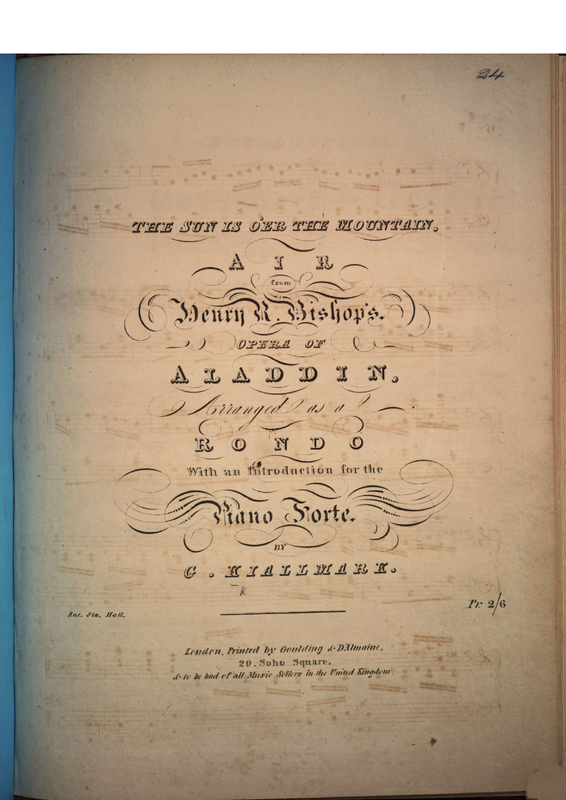 24
THE SUN IS O'ER THE MOUNTAIN,
AIR
from
Henry R. Bishop's.
OPERA OF
ALADDIN,
Arranged as a
RONDO
With an Introduction for the
Piano Forte.
BY
G. KIALLMARK.
K
Ent. Sta. Hall.
Pr. 2/6
London, Printed by Goulding & D'Almaine,
20, Soho Square,
& to be had of all Music Sellers in the United Kingdom.